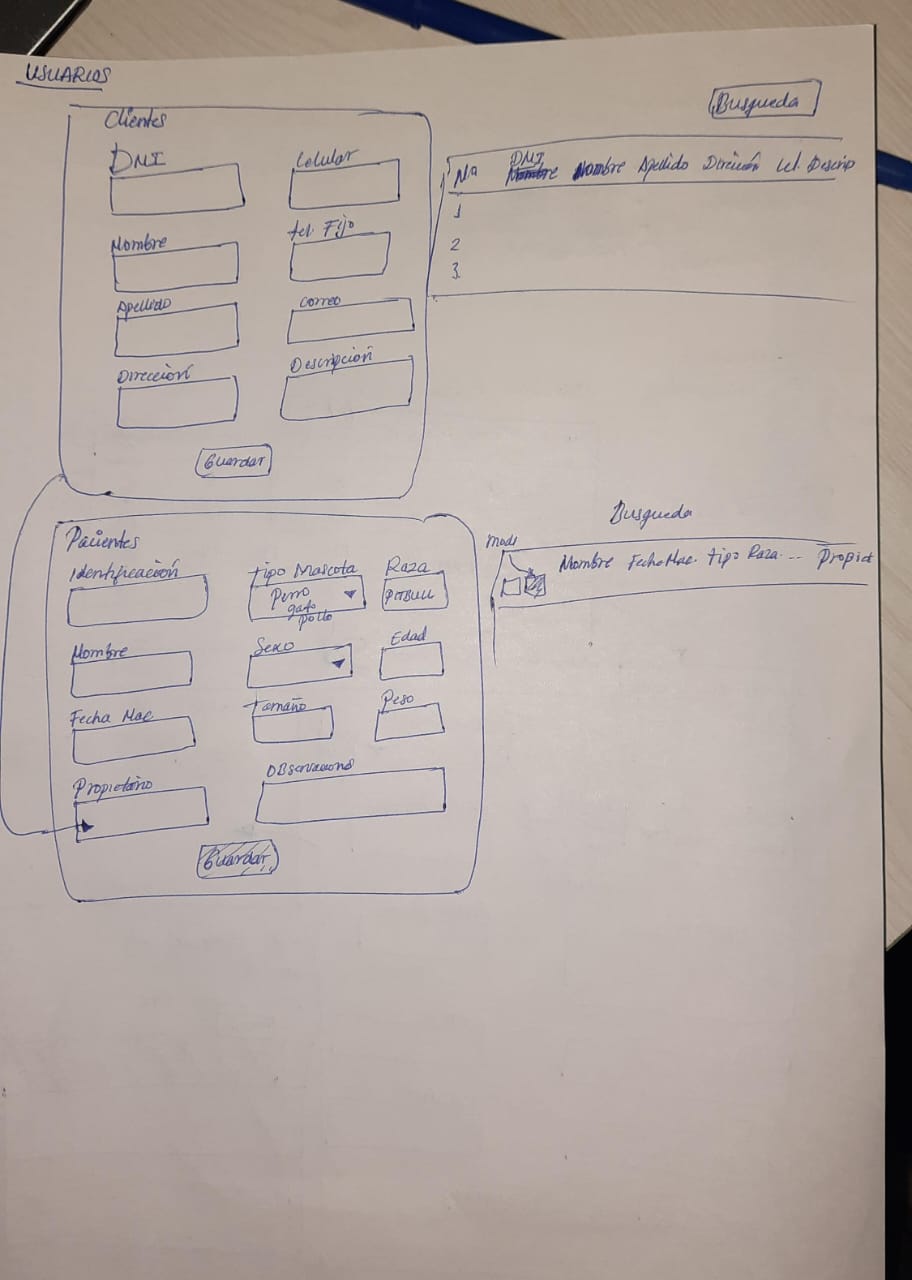 USUARIOS
Clientes
DNI
Celular
Nombre
tel. Fijo
Apellido
correo
Dirección
Descripción
Guardar
Busqueda
DNI
Nombre Apellido Dirección cel. Descrip
1
2
3.
Pacientes
Identificación
tipo Mascota
Raza
Perro
gato
pollo
PITBULL
Nombre
Sexo
Edad
Fecha Nac.
Tamaño
Peso
Propietario
Guardar
Busqueda
Nombre Fecha Nac. tipo Raza. ... Propiet